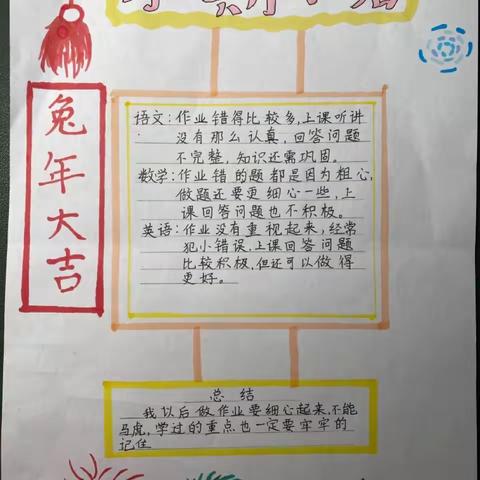 兔年大吉
语文：作业错得比较多，上课听讲
没有那么认真，回答问题
不完整，知识还需巩固。
数学：作业错的题都是因为粗心，
做题还要更细心一些，上
课回答问题也不积极。
英语：作业没有重视起来，经常
犯小错误，上课回答问题
比较积极，但还可以做得
更好。
总结
我以后做作业要细心起来，不能
马虎，学过的重点也一定要牢牢的
记住